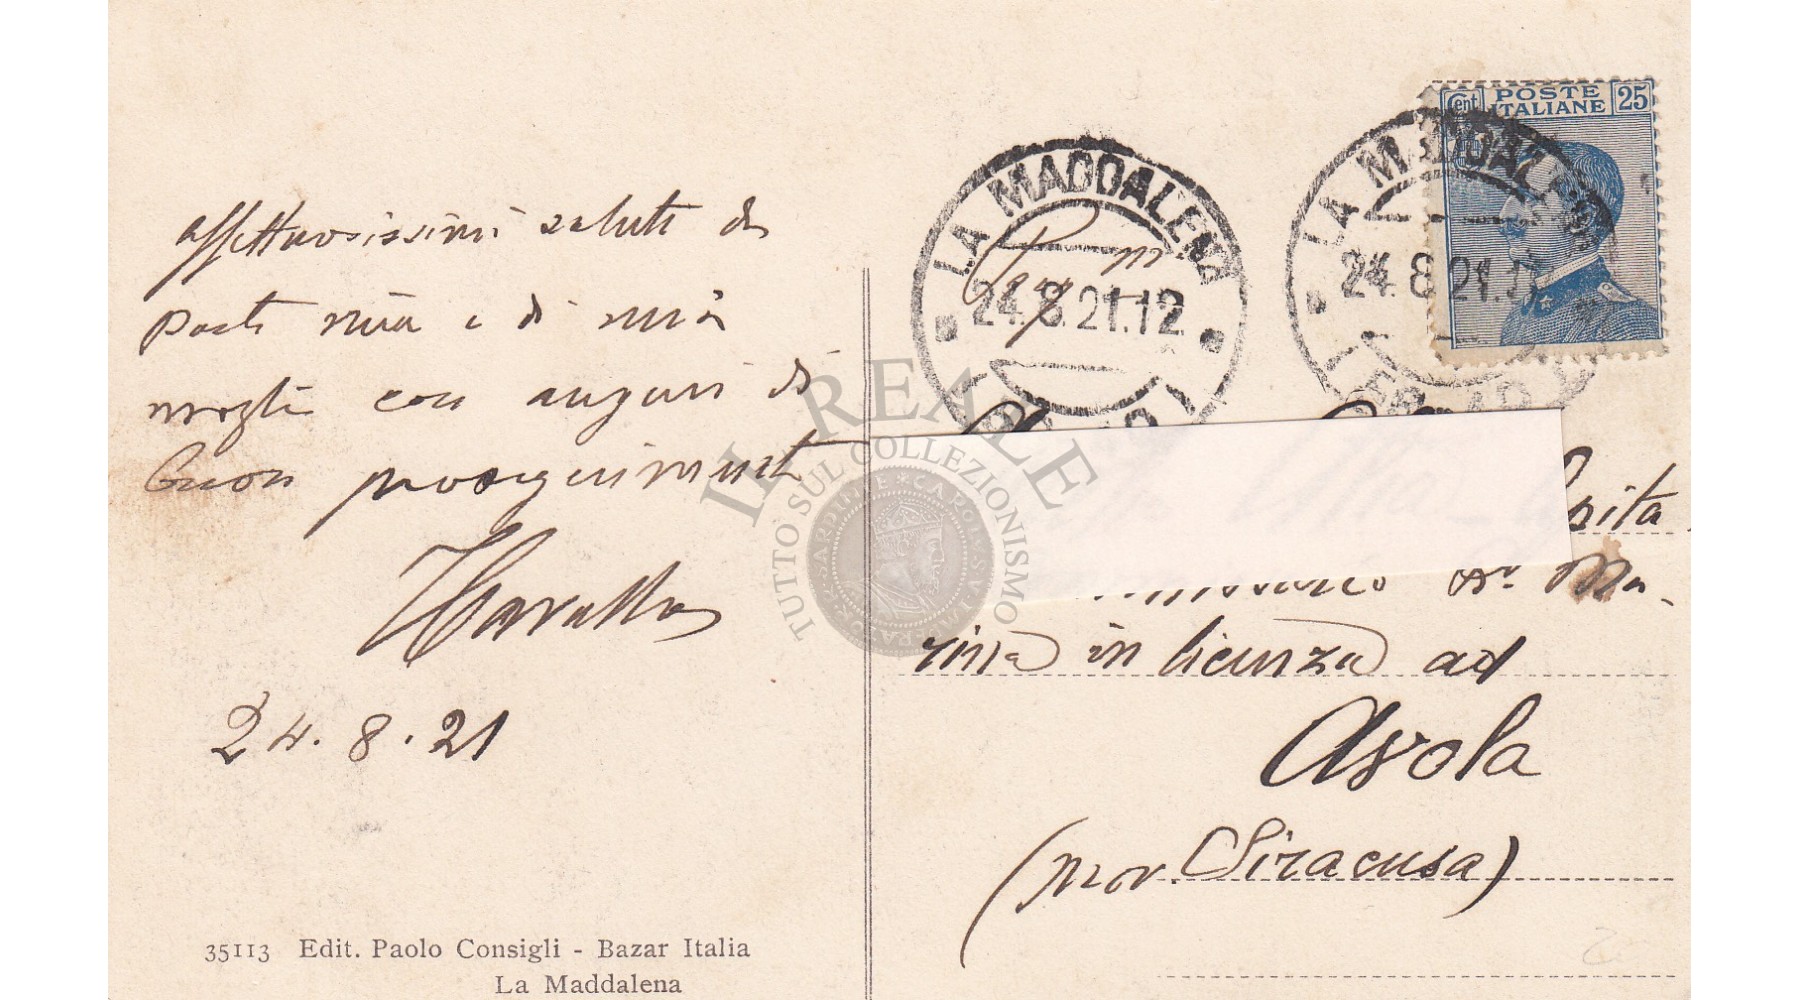 affettuosissimi saluti da
parte mia e di mia
moglie con auguri di
buon proseguimento
24.8.21
35113 Edit. Paolo Consigli - Bazar Italia
La Maddalena
LA MADDALENA
24.8.21.12
LA MADDALENA
24.8.21.
Cent POSTE ITALIANE 25
rina in licenza ad
Avola
(prov. Siracusa)
IL REALE
TUTTO SUL COLLEZIONISMO